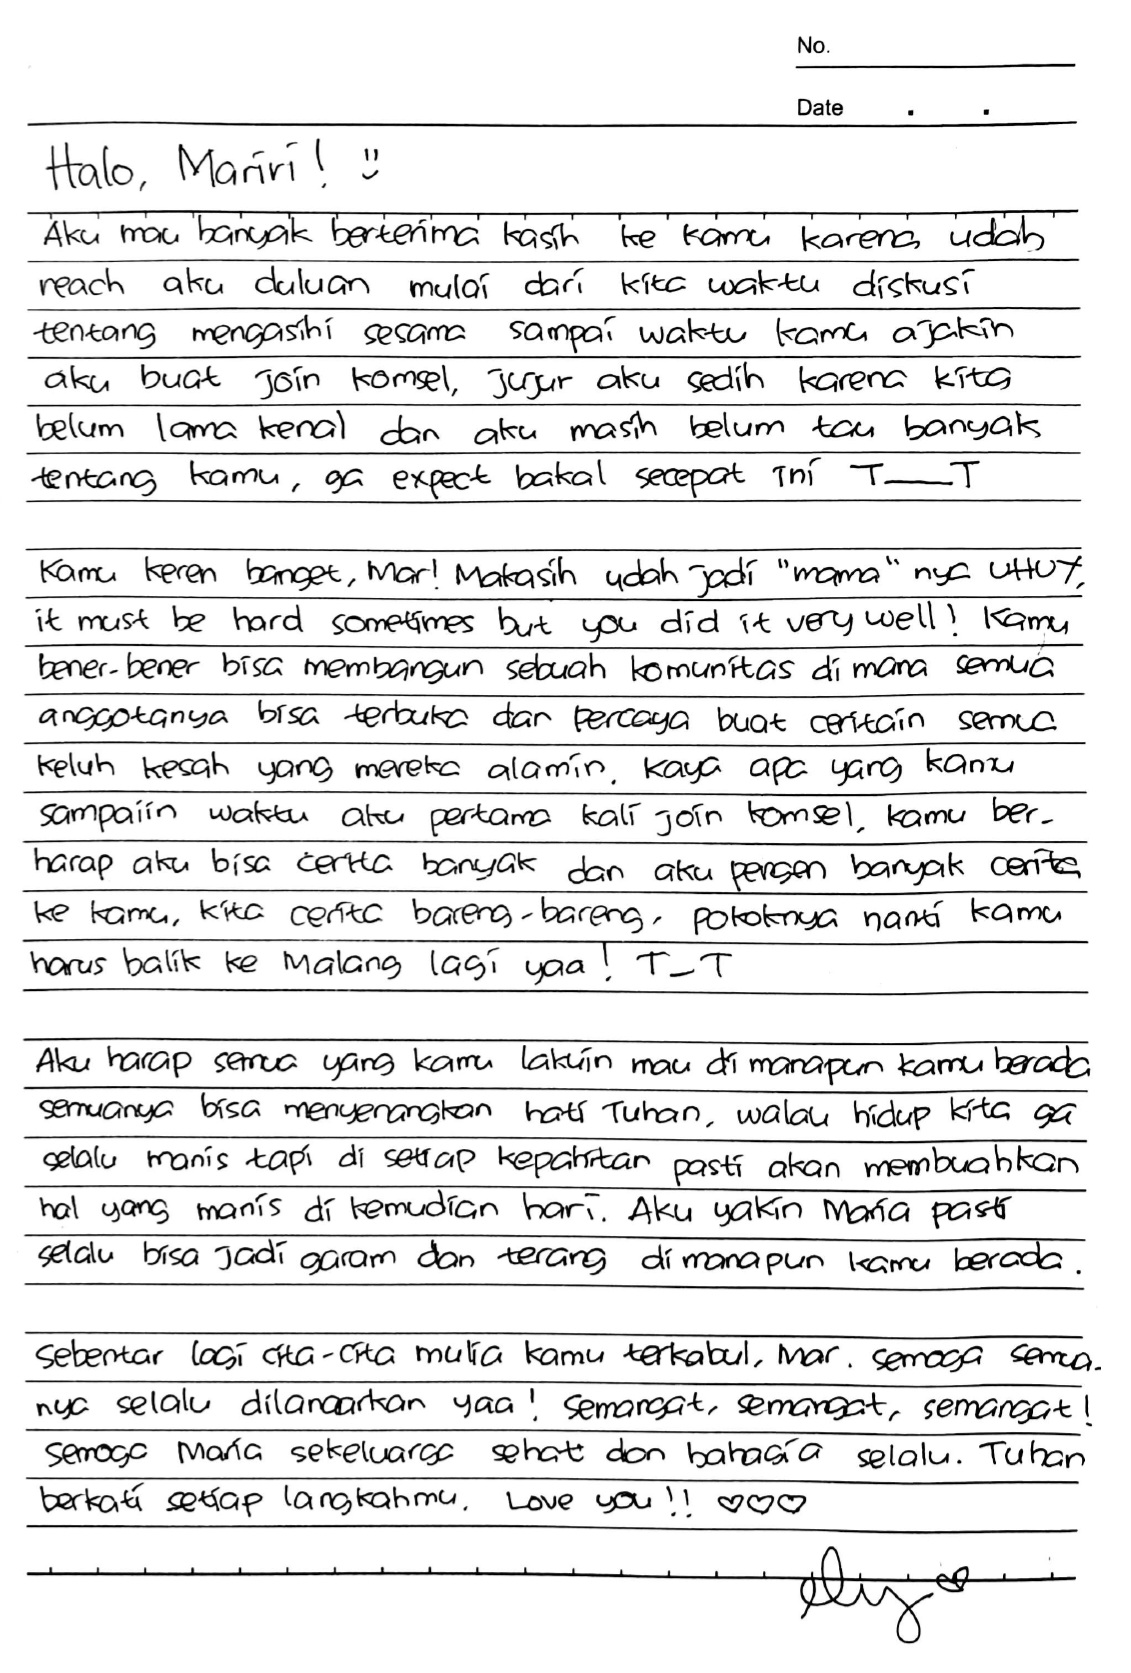 No.
Date . .
Halo, Mariri! :)
Aku mau banyak berterima kasih ke kamu karena udah
reach aku duluan mulai dari kita waktu diskusi
tentang mengasihi sesama sampai waktu kamu ajakin
aku buat join komsel, jujur aku sedih karena kita
belum lama kenal dan aku masih belum tau banyak
tentang kamu, ga expect bakal secepat ini T__T
Kamu keren banget, Mar! Makasih udah jadi "mama" nya UHUY,
it must be hard sometimes but you did it very well! Kamu
bener-bener bisa membangun sebuah komunitas di mana semua
anggotanya bisa terbuka dan percaya buat ceritain semua
keluh kesah yang mereka alamin. Kaya apa yang kamu
sampaiin waktu aku pertama kali join komsel, kamu ber-
harap aku bisa cerita banyak dan aku pengen banyak cerita
ke kamu, kita cerita bareng-bareng, pokoknya nanti kamu
harus balik ke Malang lagi yaa! T_T
Aku harap semua yang kamu lakuin mau di manapun kamu berada
semuanya bisa menyenangkan hati Tuhan, walau hidup kita ga
selalu manis tapi di setiap kepahitan pasti akan membuahkan
hal yang manis di kemudian hari. Aku yakin Maria pasti
selalu bisa jadi garam dan terang di manapun kamu berada.
Sebentar lagi cita-cita mulia kamu terkabul, Mar. semoga semua-
nya selalu dilancarkan yaa! Semangat, semangat, semangat!
Semoga Maria sekeluarga sehat dan bahagia selalu. Tuhan
berkati setiap langkahmu. Love you!! ♡♡♡